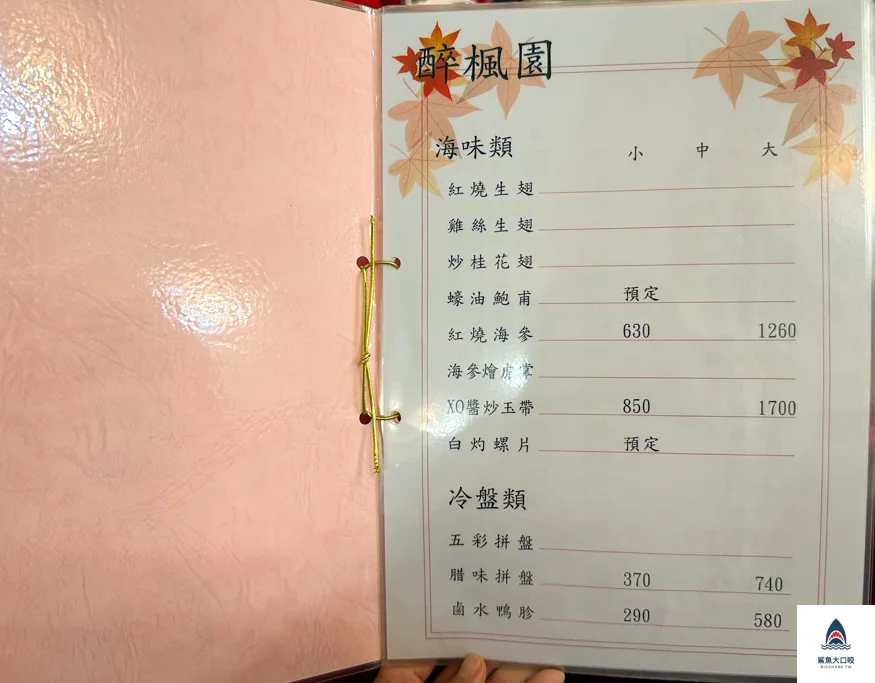 醉楓園
海味類 小 中 大
紅燒生翅
雞絲生翅
炒桂花翅
蠔油鮑甫 預定
紅燒海參 630 1260
海參燴虎掌
XO醬炒玉帶 850 1700
白灼螺片 預定
冷盤類
五彩拼盤
腊味拼盤 370 740
鹵水鴨胗 290 580
鯊魚大口咬
BIGSHARE.TW